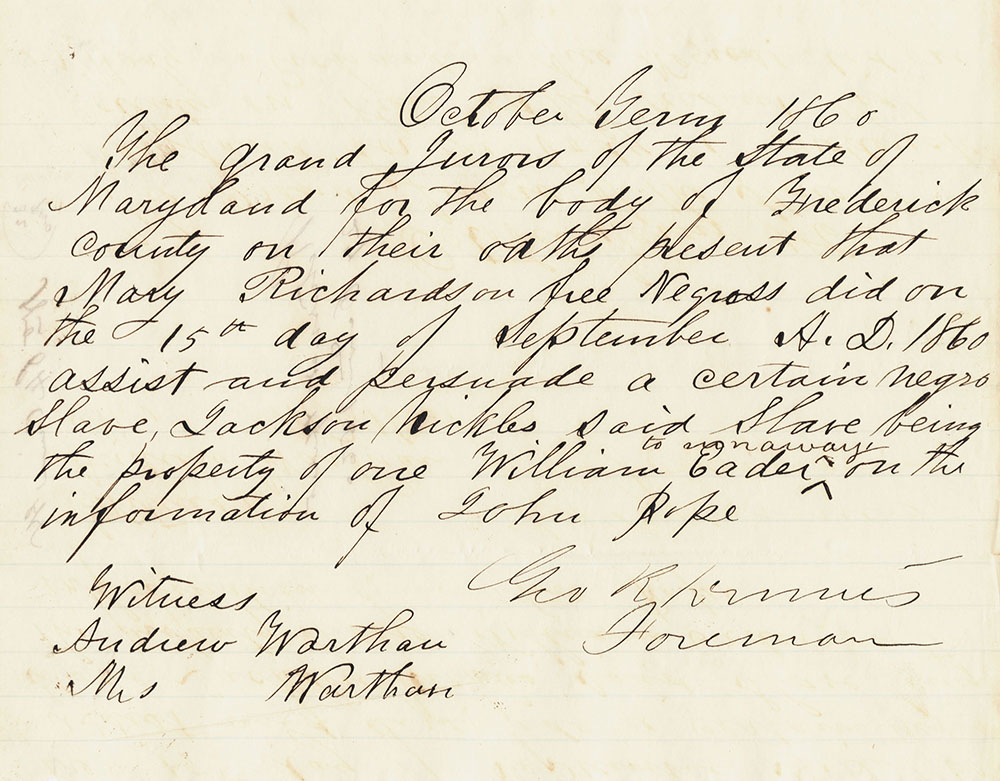 October Term 1860
The grand Jurors of the State of
Maryland for the body of Frederick
county on their oaths present that
Mary Richardson free Negross did on
the 15th day of September A. D. 1860
assist and persuade a certain negro
Slave, Jackson Nickles said Slave being
to runaway
the property of one William Eader ^ on the
information of John Pope
Witness
Geo R
Andrew Warthan
Foreman
Mrs Warthan